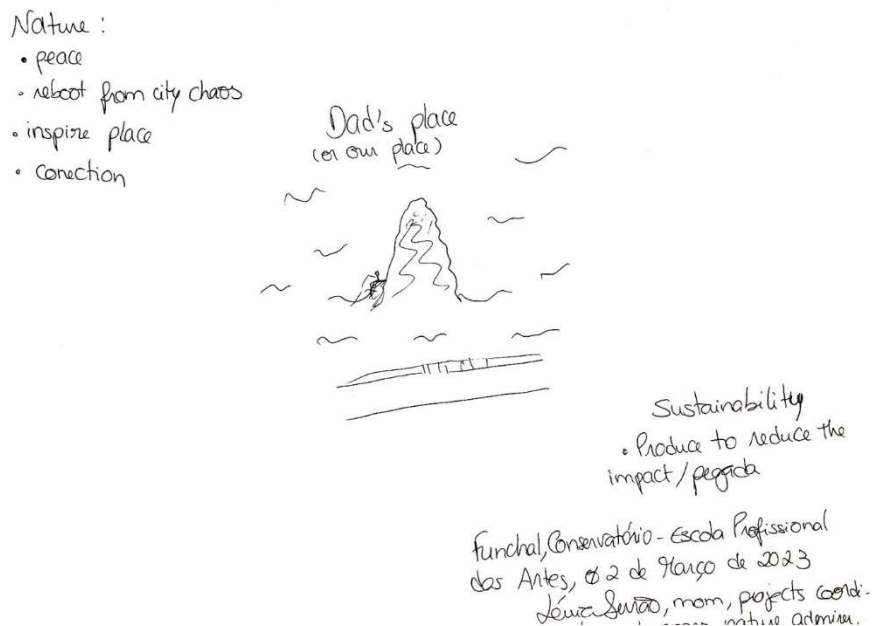 Nature :
• peace
• reboot from city chaos
• inspire place
• conection
Dad's place
(or our place)
Sustainability
• Produce to reduce the
impact / pegada
Funchal, Conservatório - Escola Profissional
das Artes, 02 de Março de 2023
mom, projects coordi-
nature admirer.